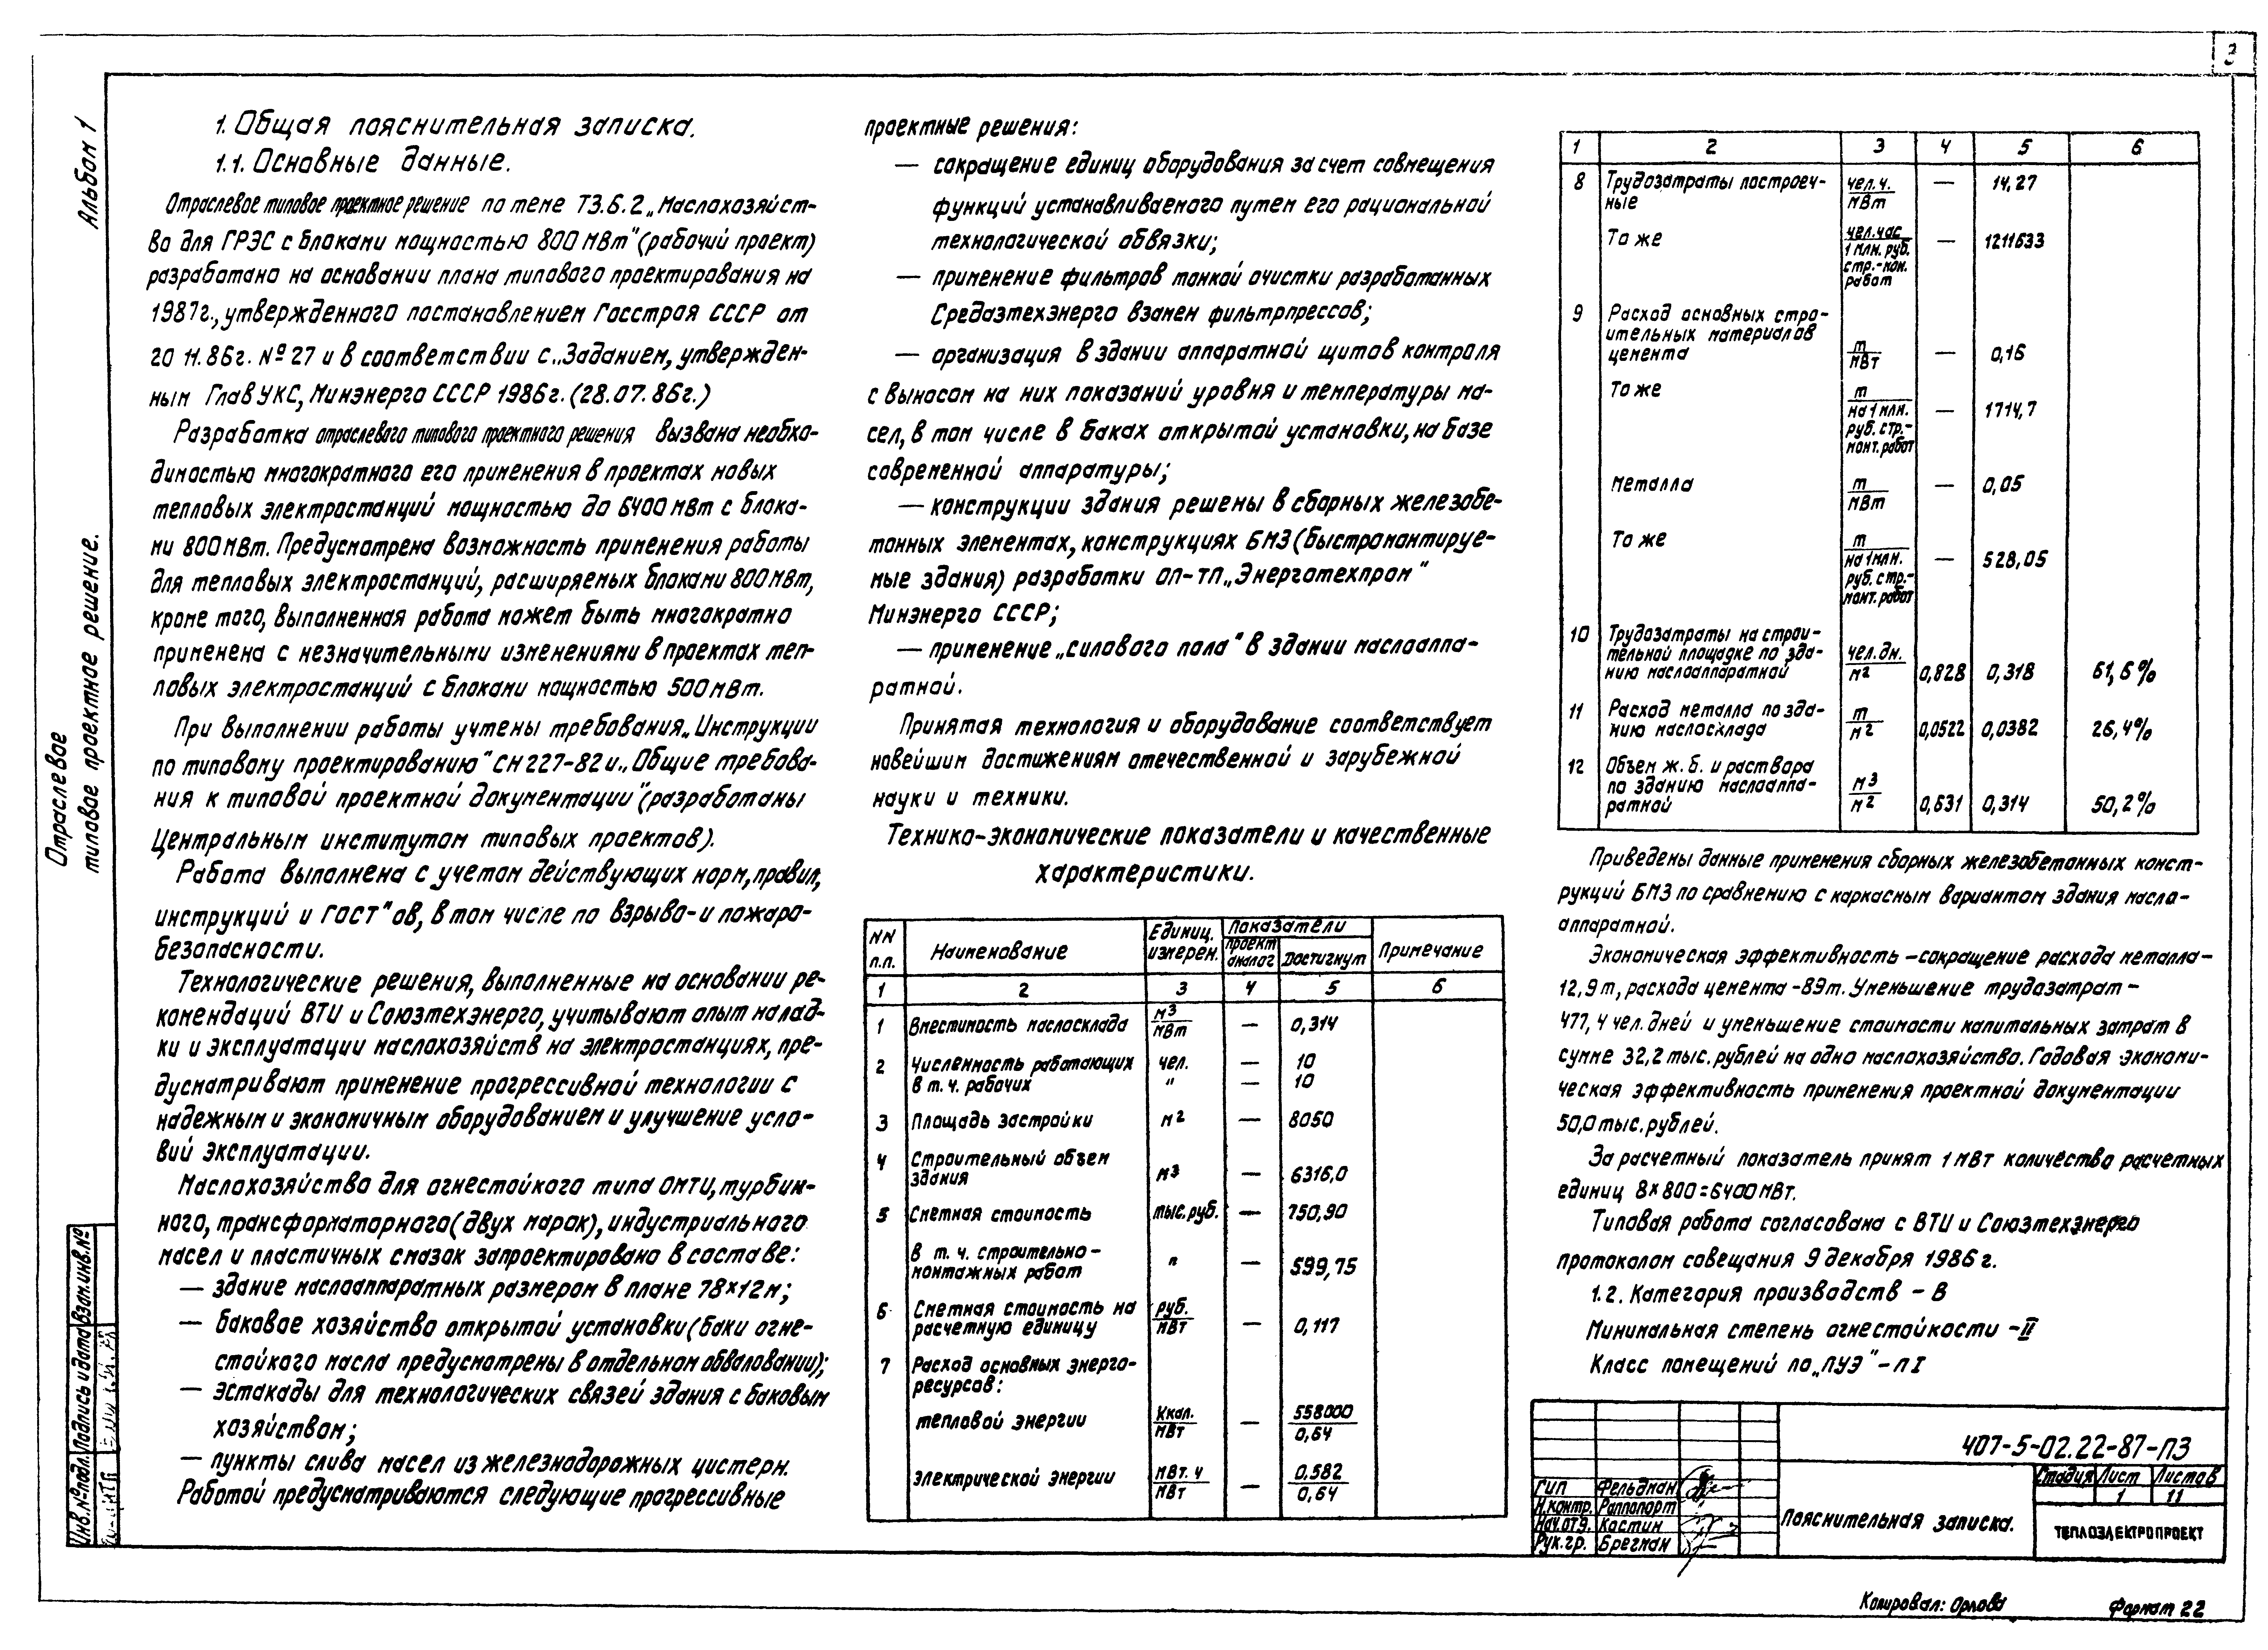 3
Альбом 1
Отраслевое
типовое проектное решение.
1. Общая пояснительная записка.
1.1. Основные данные.
Отраслевое типовое проектное решение по теме Т3.6.2 „Маслохозяйст-
во для ГРЭС с блоками мощностью 800 МВт" (рабочий проект)
разработано на основании плана типового проектирования на
1987г., утвержденного постановлением Госстроя СССР от
20 11.86г. №27 и в соответствии с „Заданием, утвержден-
ным ГлавУКС, Минэнерго СССР 1986г. (28.07.86г.)
Разработка отраслевого типового проектного решения вызвана необхо-
димостью многократного его применения в проектах новых
тепловых электростанций мощностью до 6400 МВт с блока-
ми 800МВт. Предусмотрена возможность применения работы
для тепловых электростанций, расширяемых блоками 800 МВт,
кроме того, выполненная работа может быть многократно
применена с незначительными изменениями в проектах теп-
ловых электростанций с блоками мощностью 500 МВт.
При выполнении работы учтены требования „Инструкции
по типовому проектированию" СН 227-82 и „Общие требова-
ния к типовой проектной документации" (разработаны
Центральным институтом типовых проектов).
Работа выполнена с учетом действующих норм, правил,
инструкций и ГОСТ"ов, в том числе по взрыво- и пожаро-
безопасности.
Технологические решения, выполненные на основании ре-
комендаций ВТИ и Союзтехэнерго, учитывают опыт налад-
ки и эксплуатации маслохозяйств на электростанциях, пре-
дусматривают применение прогрессивной технологии с
надежным и экономичным оборудованием и улучшение усло-
вий эксплуатации.
Маслохозяйство для огнестойкого типа ОМТИ, турбин-
ного, трансформаторного (двух марок), индустриального
масел и пластичных смазок запроектировано в составе:
— здание маслоаппаратных размером в плане 78×12м;
— баковое хозяйство открытой установки (баки огне-
стойкого масла предусмотрены в отдельном обваловании);
— эстакады для технологических связей здания с баковым
хозяйством;
— пункты слива масел из железнодорожных цистерн.
Работой предусматриваются следующие прогрессивные
проектные решения:
— сокращение единиц оборудования за счет совмещения
функций устанавливаемого путем его рациональной
технологической обвязки;
— применение фильтров тонкой очистки разработанных
Средазтехэнерго взамен фильтрпрессов;
— организация в здании аппаратной щитов контроля
с выносом на них показаний уровня и температуры ма-
сел, в том числе в баках открытой установки, на базе
современной аппаратуры;
— конструкции здания решены в сборных железобе-
тонных элементах, конструкциях БМЗ (быстромонтируе-
мые здания) разработки ОП-ТП „Энерготехпром"
Минэнерго СССР;
— применение „силового пола" в здании маслоаппа-
ратной.
Принятая технология и оборудование соответствует
новейшим достижениям отечественной и зарубежной
науки и техники.
Технико-экономические показатели и качественные
характеристики.
NN п.п. Наименование Единиц. измерен. Показатели проект аналог Достигнут Примечание
1 2 3 4 5 6
1 Вместимость маслосклада м3/МВт — 0,314
2 Численность работающих чел. — 10
в т. ч. рабочих " — 10
3 Площадь застройки м2 — 8050
4 Строительный объем
здания м3 — 6316,0
5 Сметная стоимость тыс.руб. — 750,90
в т. ч. строительно-
монтажных работ " — 599,75
6 Сметная стоимость на руб./МВт
расчетную единицу — 0,117
7 Расход основных энерго-
ресурсов:
тепловой энергии Ккал./МВт — 558000/0,64
электрической энергии МВт.ч/МВт — 0.582/0,64
1 2 3 4 5 6
8 Трудозатраты построеч- чел.ч./МВт — 14,27
ные
То же чел.час/1 млн. руб. стр.-мон. работ — 1211633
9 Расход основных стро-
ительных материалов
цемента т/МВт — 0,16
То же т/на 1 млн. руб. стр.- монт. работ — 1714,7
металла т/МВт — 0,05
То же т/на 1млн. руб. стр.- монт. работ — 528,05
10 Трудозатраты на строи-
тельной площадке по зда-
нию маслоаппаратной чел.дн./м2 0,828 0,318 61,6%
11 Расход металла по зда-
нию маслосклада т/м2 0,0522 0,0382 26,4%
12 Объем ж. б. и раствора
по зданию маслоаппа-
ратной м3/м2 0,631 0,314 50,2%
Приведены данные применения сборных железобетонных конст-
рукций БМЗ по сравнению с каркасным вариантом здания масло-
аппаратной.
Экономическая эффективность – сокращение расхода металла –
12,9т, расхода цемента – 89т. Уменьшение трудозатрат –
477,4 чел. дней и уменьшение стоимости капитальных затрат в
сумме 32,2 тыс. рублей на одно маслохозяйство. Годовая экономи-
ческая эффективность применения проектной документации
50,0 тыс. рублей.
За расчетный показатель принят 1 МВт количества расчетных
единиц 8×800=6400МВт.
Типовая работа согласована с ВТИ и Союзтехэнерго
протоколом совещания 9 декабря 1986 г.
1.2. Категория производств – В
Минимальная степень огнестойкости – II
Класс помещений по „ПУЭ" – П I
407-5-02.22-87-ПЗ
Стадия Лист Листов
1 11
ГИП Фельдман
Н.контр. Раппопорт
Нач.отд. Костин
Рук.гр. Брегман
Пояснительная записка.
ТЕПЛОЭЛЕКТРОПРОЕКТ
Инв.№подл. Подпись и дата Взам.инв.№
Копировал: Орлова
Формат 22